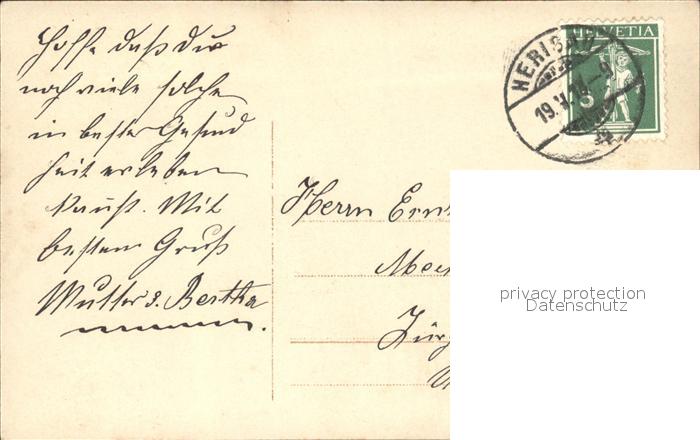 Hoffe daß du
noch viele solche
in bester Gesund
heit erleben
kanst. Mit
bestem Gruß
Mutter & Bertha
HELVETIA
5
HERISAU
19.V.14–9
Herrn Erns
Mei
Zür
privacy protection
Datenschutz